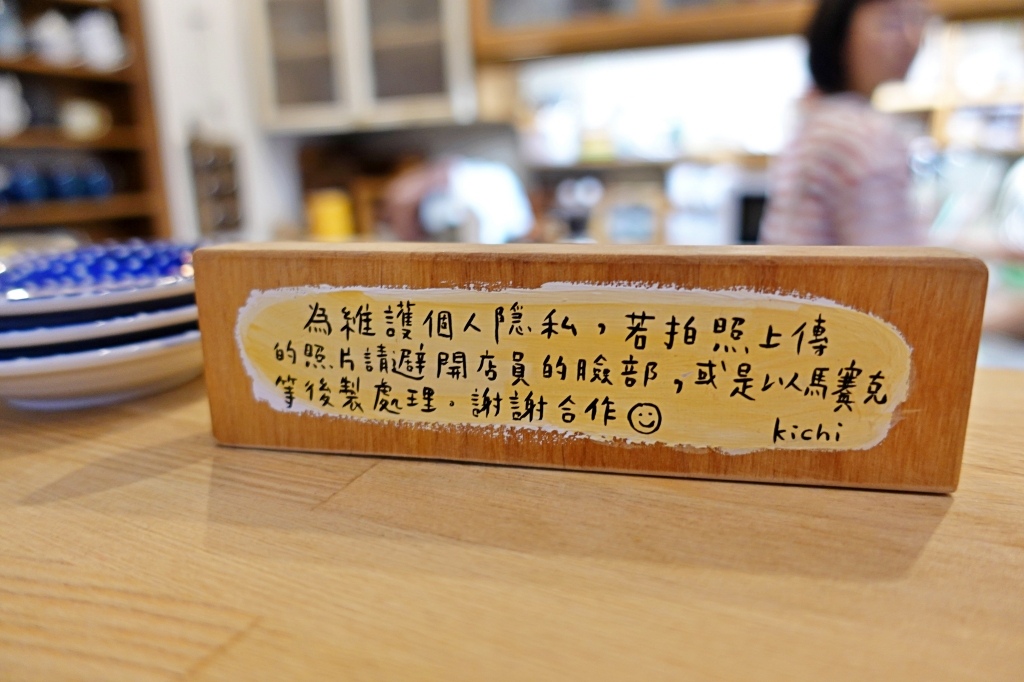 為維護個人隱私，若拍照上傳
的照片請避開店員的臉部，或是以馬賽克
等後製處理。謝謝合作☺
kichi